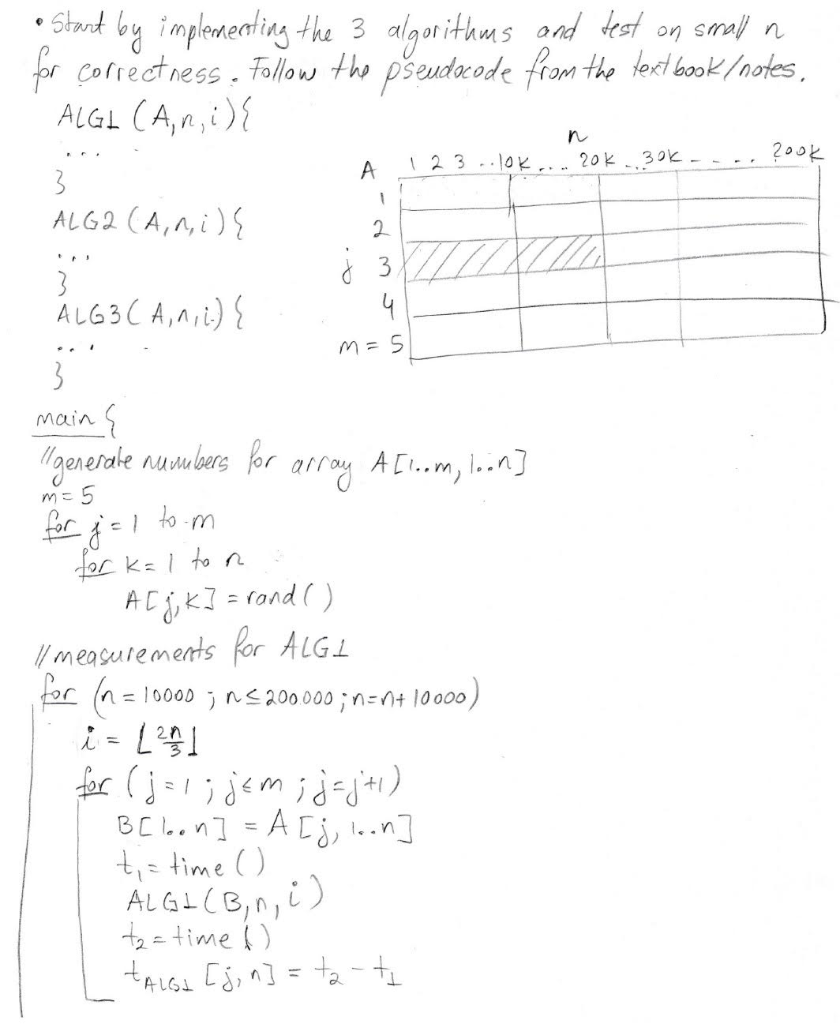 • Start by implementing the 3 algorithms and test on small n
for correctness. Follow the pseudocode from the textbook/notes.
ALG1 (A,n,i){
...
}
ALG2 (A,n,i){
...
}
ALG3(A,n,i){
...
}
n
A 1 2 3 ..10K.... 20K ..30K - - - .. 200K
1
2
j 3
4
m = 5
main {
//generate numbers for array A[1..m, 1..n]
m = 5
for j = 1 to m
for k = 1 to n
A[j,k] = rand()
//measurements for ALG1
for (n = 10000 ; n ≤ 200000 ; n = n + 10000)
i = ⌊2n/3⌋
for (j = 1 ; j ≤ m ; j = j + 1)
B[1..n] = A[j, 1..n]
t₁ = time()
ALG1(B,n,i)
t₂ = time()
t_ALG1 [j,n] = t₂ - t₁